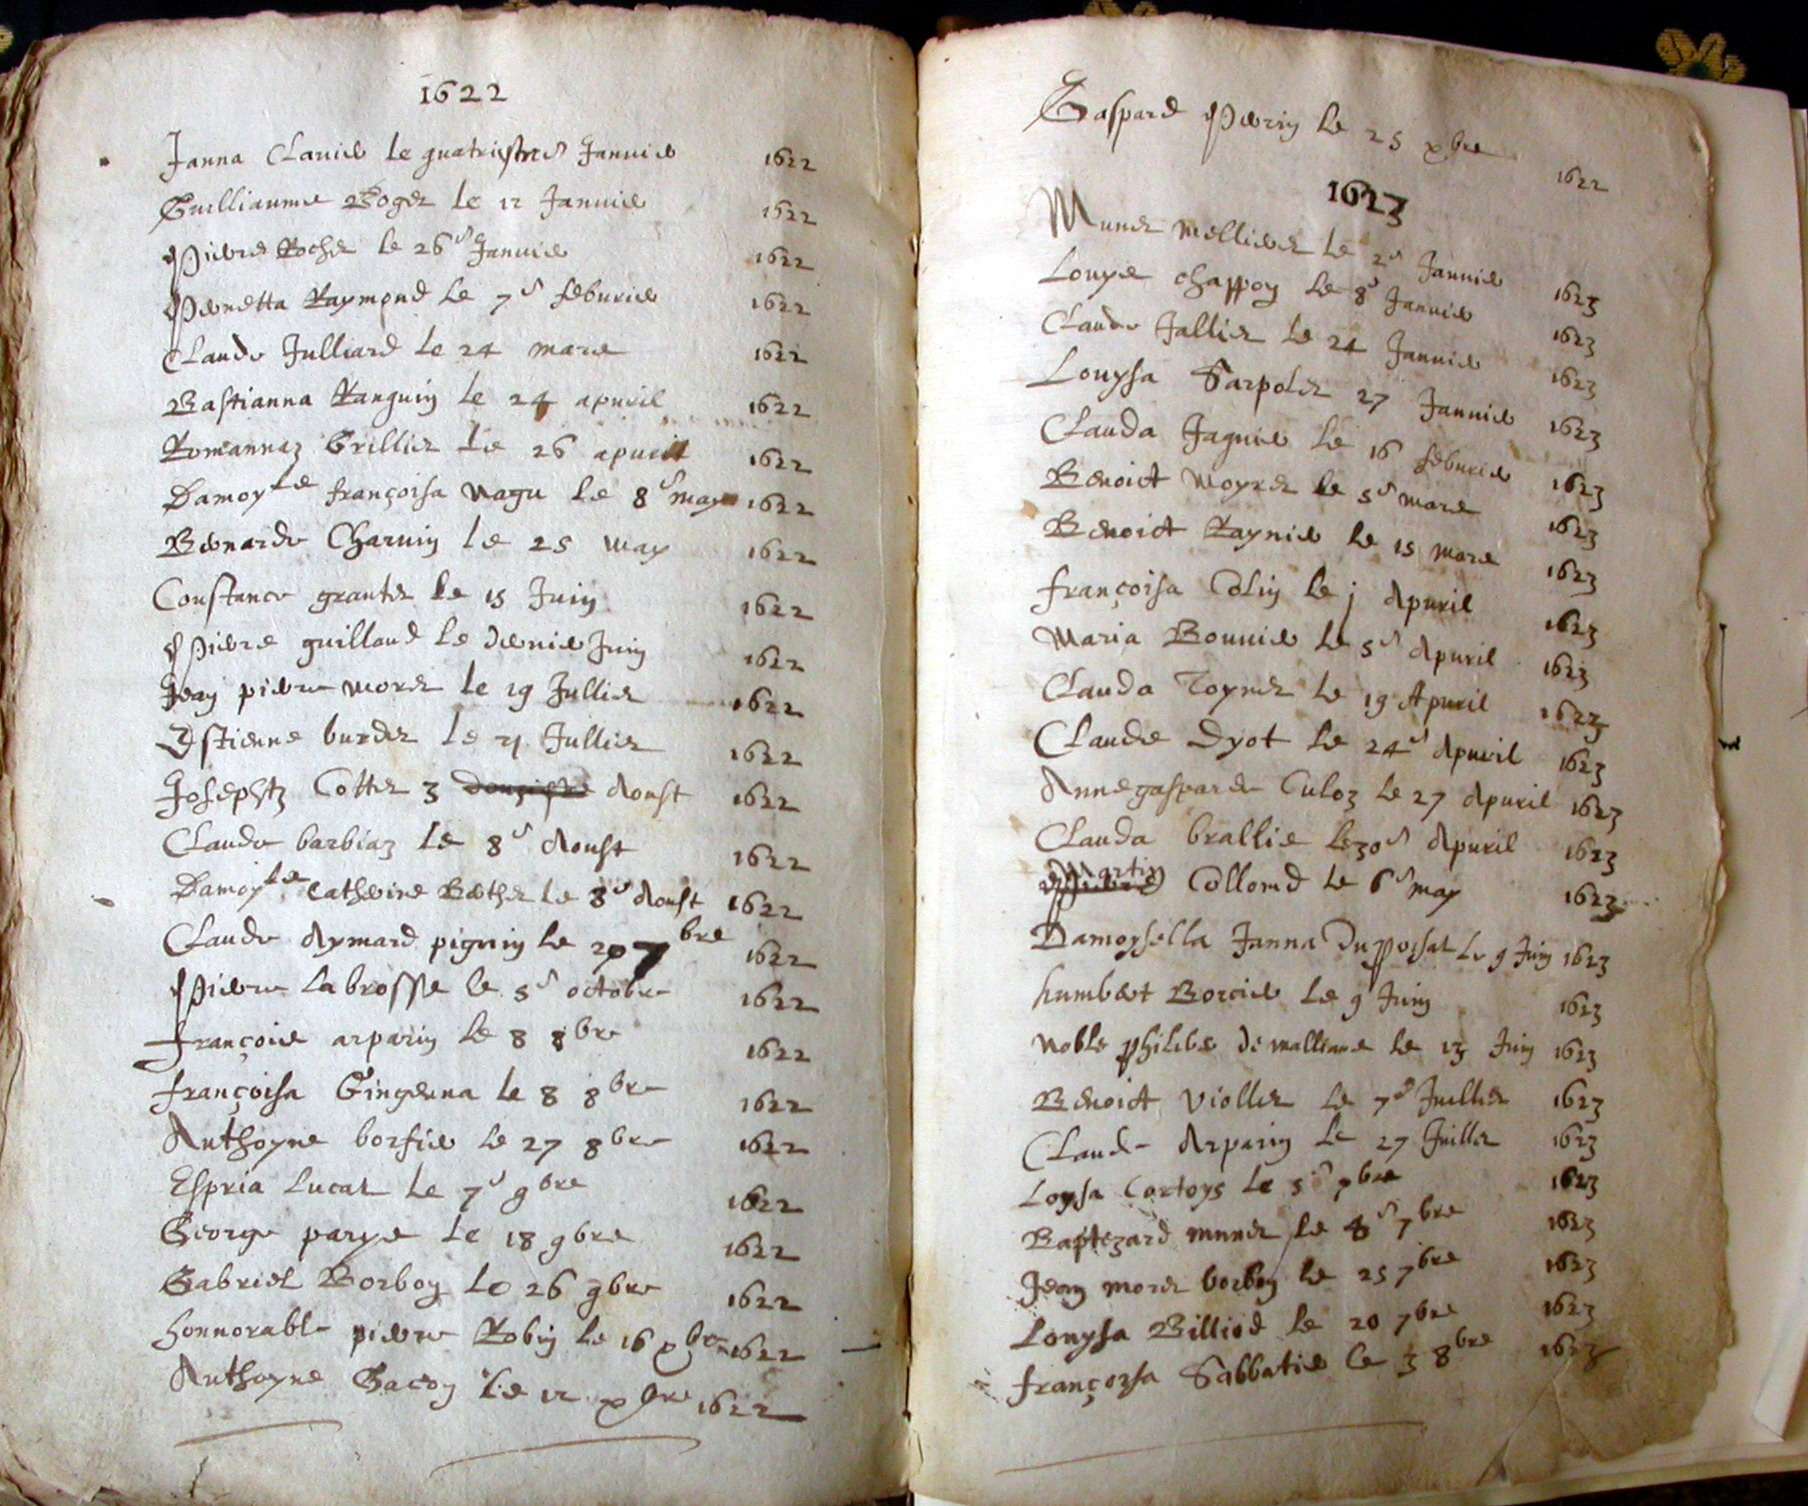 1622
Janna Clavier le quatriesme Janvier 1622
Guilliaume Roger le 12 Janvier 1622
Pierre Rocher le 26e Janvier 1622
Pernetta Raymond le 7e feburier 1622
Claude Julliard le 24 mars 1622
Bastianna Ranguin le 24 apuril 1622
Romannaz Grillier le 26 apuril 1622
Damoyle françoisa Nagu le 8e may 1622
Bernarde Charuin le 25 may 1622
Constance grantet le 15 Juin 1622
Pierre guillaud le dernier Juin 1622
Jean pierre moret le 19 Jullier 1622
Estienne burdet le 21 Jullier 1622
Josephtz Cottet 3 Aoust 1622
Claude barbiaz le 8e Aoust 1622
Damoyle Catherine le 8e Aoust 1622
Claude Aymard piguin le 20 7bre 1622
Pierre Labrosse le 5e octobre 1622
françois arparin le 8 8bre 1622
françoisa Gingenna le 8 8bre 1622
Anthoyne borsier le 27 8bre 1622
Espria Lucat le 7e 9bre 1622
George parye le 18 9bre 1622
Gabriel Borbon le 26 9bre 1622
honnorable pierre Robin le 16 xbre 1622
Anthoyne Gacon le 12 xbre 1622
Gaspard Perrin le 25 xbre 1622
1623
Munet mellieret le 2e Janvier 1623
Louyse chappon le 8e Janvier 1623
Claude Jallier le 24 Janvier 1623
Louysa Sarpolet 27 Janvier 1623
Clauda Jaguier le 16 feburier 1623
Benoict moyret le 5e mars 1623
Benoict Raynier le 15 mars 1623
françoisa Colin le j Apuril 1623
Maria Bouuier le 5e Apuril 1623
Clauda Toynet le 19 Apuril 1623
Claude Dyot le 24e Apuril 1623
Anne gasparde Culoz le 27 Apuril 1623
Clauda brallie le 30e Apuril 1623
Martin Collomd le 6e may 1623
Damoysella Janna Du le 9 Juin 1623
humbert Borcier le 9 Juin 1623
Noble philibert de le 13 Juin 1623
Benoict Viollet le 7e Juillet 1623
Claude Arparin le 27 Juillet 1623
Loysa Cortoys le 5e 7bre 1623
Baptezard munet le 8e 7bre 1623
Jean moret borbon le 25 7bre 1623
Louysa Billiod le 20 7bre 1623
françoysa Sabbatier le 3 8bre 1623